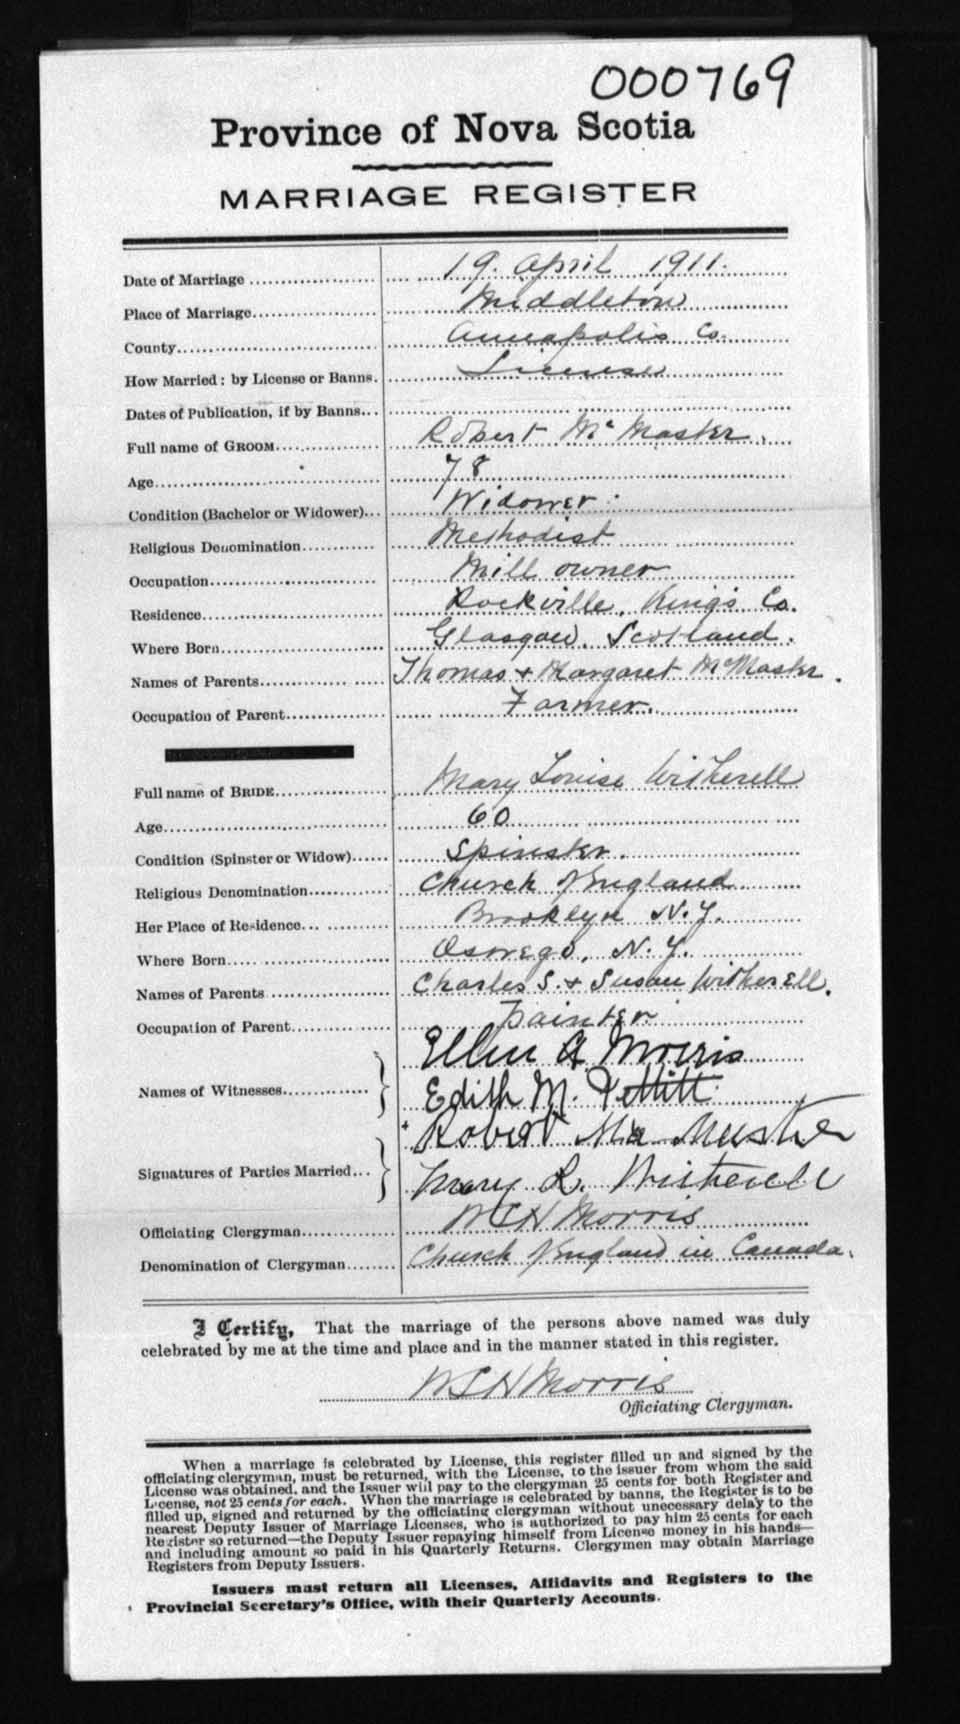 000769
Province of Nova Scotia
MARRIAGE REGISTER
Date of Marriage 19. April 1911.
Place of Marriage Middleton
County Annapolis Co.
How Married: by License or Banns. License
Dates of Publication, if by Banns
Full name of GROOM Robert McMaster.
Age 78
Condition (Bachelor or Widower) Widower
Religious Denomination Methodist
Occupation Mill owner
Residence Rockville, King's Co.
Where Born Glasgow, Scotland.
Names of Parents Thomas + Margaret McMaster.
Occupation of Parent Farmer.
Full name of BRIDE Mary Louise Witherell
Age 60
Condition (Spinster or Widow) Spinster.
Religious Denomination Church of England
Her Place of Residence Brooklyn N.Y.
Where Born Oswego, N.Y.
Names of Parents Charles S. + Susan Witherell.
Occupation of Parent Painter
Ellen A Morris
Names of Witnesses
Edith M. Pettitt
Robert McMaster
Signatures of Parties Married
Mary L. Witherell
Officiating Clergyman WCH Morris
Denomination of Clergyman Church of England in Canada.
I Certify, That the marriage of the persons above named was duly
celebrated by me at the time and place and in the manner stated in this register.
WCH Morris
Officiating Clergyman.
When a marriage is celebrated by License, this register filled up and signed by the
officiating clergyman, must be returned, with the License, to the issuer from whom the said
License was obtained, and the Issuer will pay to the clergyman 25 cents for both Register and
License, not 25 cents for each. When the marriage is celebrated by banns, the Register is to be
filled up, signed and returned by the officiating clergyman without unnecessary delay to the
nearest Deputy Issuer of Marriage Licenses, who is authorized to pay him 25 cents for each
Register so returned—the Deputy Issuer repaying himself from License money in his hands—
and including amount so paid in his Quarterly Returns. Clergymen may obtain Marriage
Registers from Deputy Issuers.
Issuers must return all Licenses, Affidavits and Registers to the
Provincial Secretary's Office, with their Quarterly Accounts.